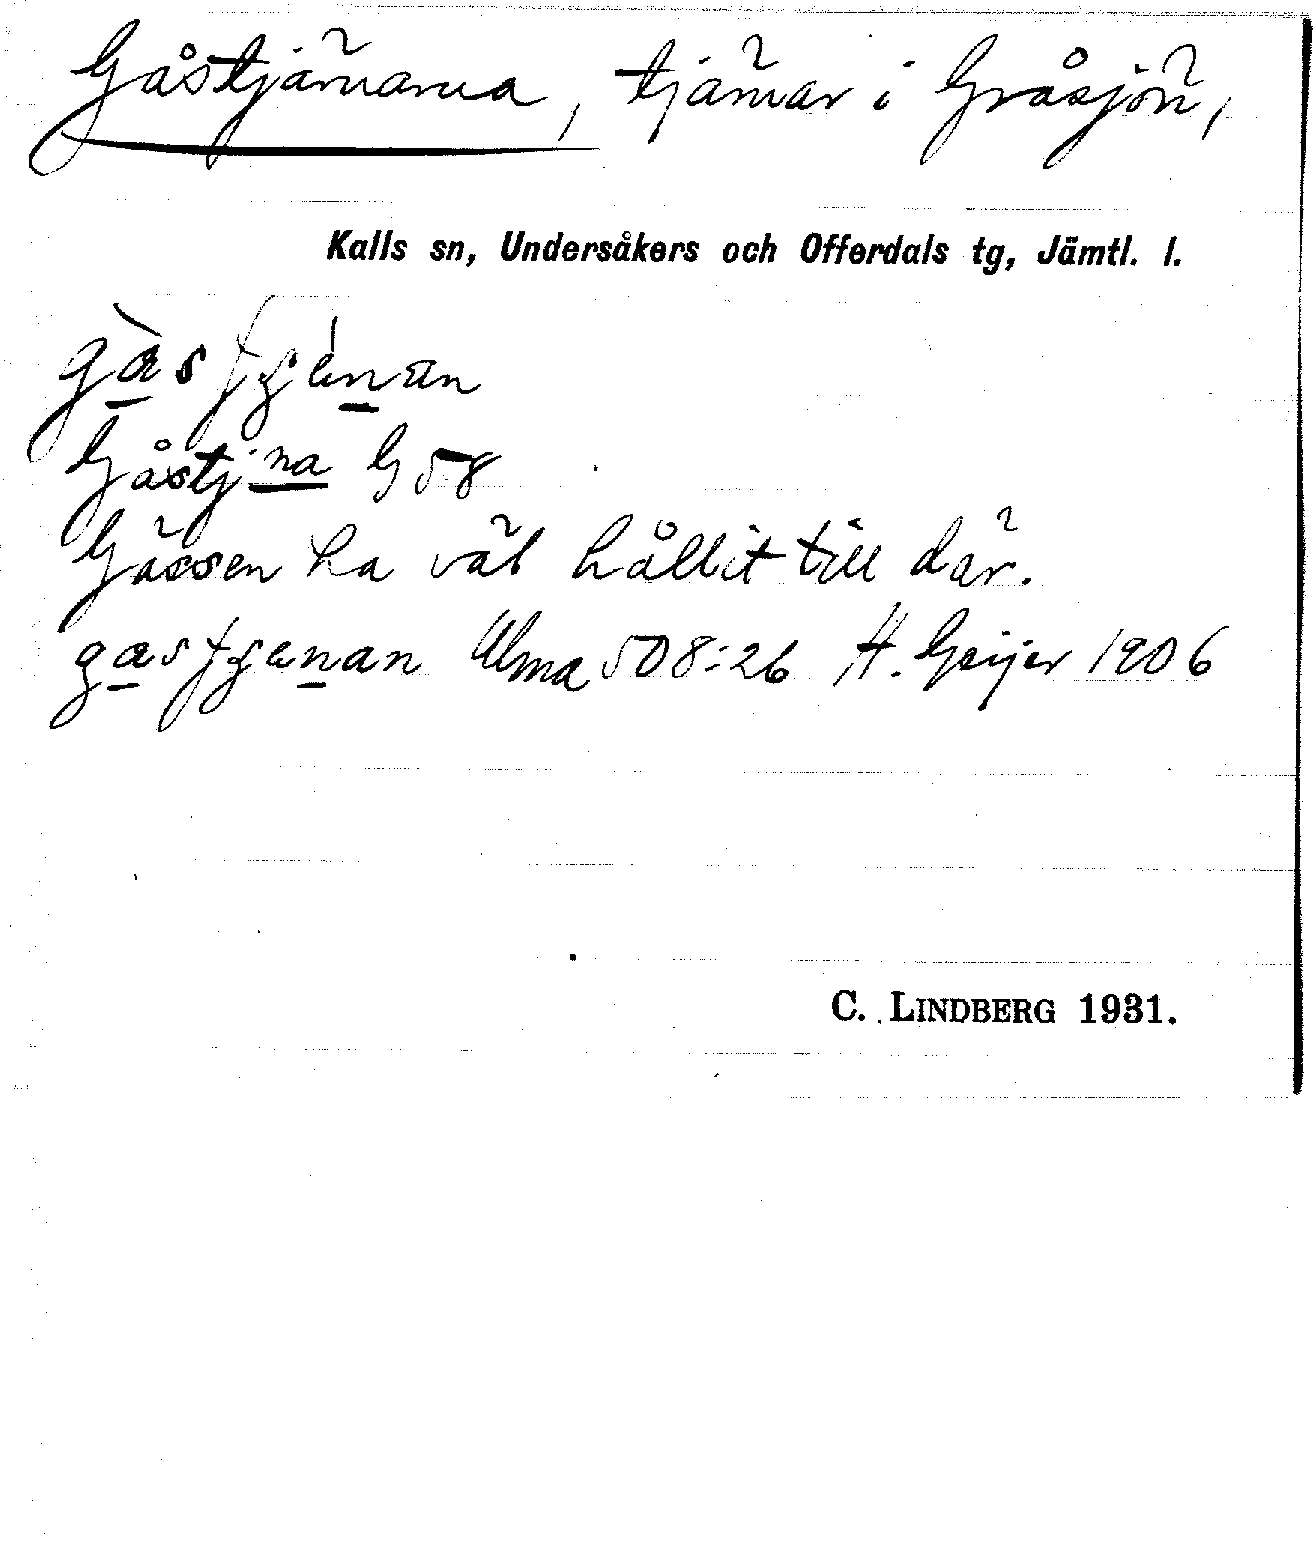 Gåstjärnarna, tjärnar i Gråsjön,
Kalls sn, Undersåkers och Offerdals tg, Jämtl. l.
Gåstjna G 58
Gässen ha väl hållit till där.
Ulma 508:26 H. Geijer 1906
C. LINDBERG 1931.